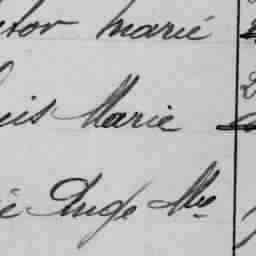 ctor Marié
uis Marie
é Ange Mie